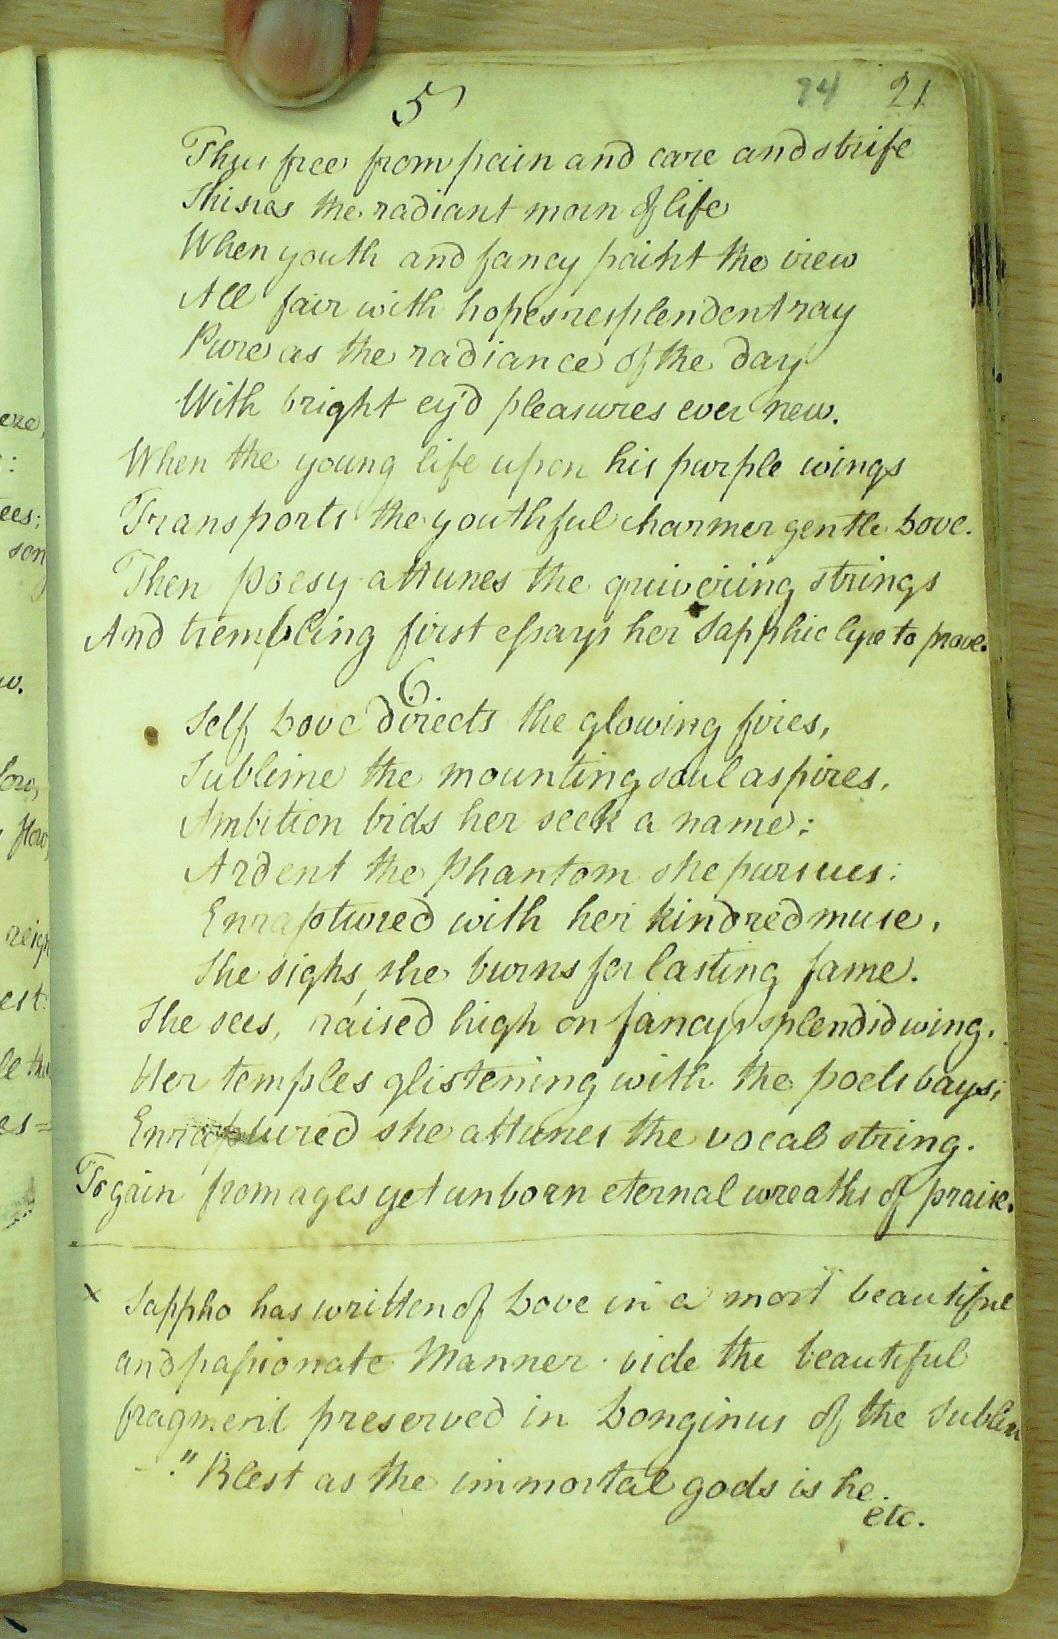 5
74 21
Thus free from pain and care and strife
Shines the radiant morn of life
When youth and fancy paint the view
All fair with hopes resplendent ray
Pure as the radiance of the day
With bright ey'd pleasures ever new.
When the young life upon his purple wings
Transports the youthful charmer gentle Love.
Then poesy attunes the quivering strings
And trembling first essays her Sapphic lyre to prove.
6
Self Love directs the glowing fires,
Sublime the mounting soul aspires,
Ambition bids her seek a name;
Ardent the Phantom she pursues:
Enraptured with her kindred muse,
She sighs, she burns for lasting fame.
She sees, raised high on fancys splendid wing.
Her temples glistening with the poets bays;
Enraptured she attunes the vocal string.
To gain from ages yet unborn eternal wreaths of praise.
x Sappho has written of Love in a most beautiful
and passionate Manner. vide the beautiful
fragment preserved in Longinus of the Sublim
"Blest as the immortal gods is he.
etc.
ere,
:
ees;
son
w.
flow
reign
est:
le the
es=